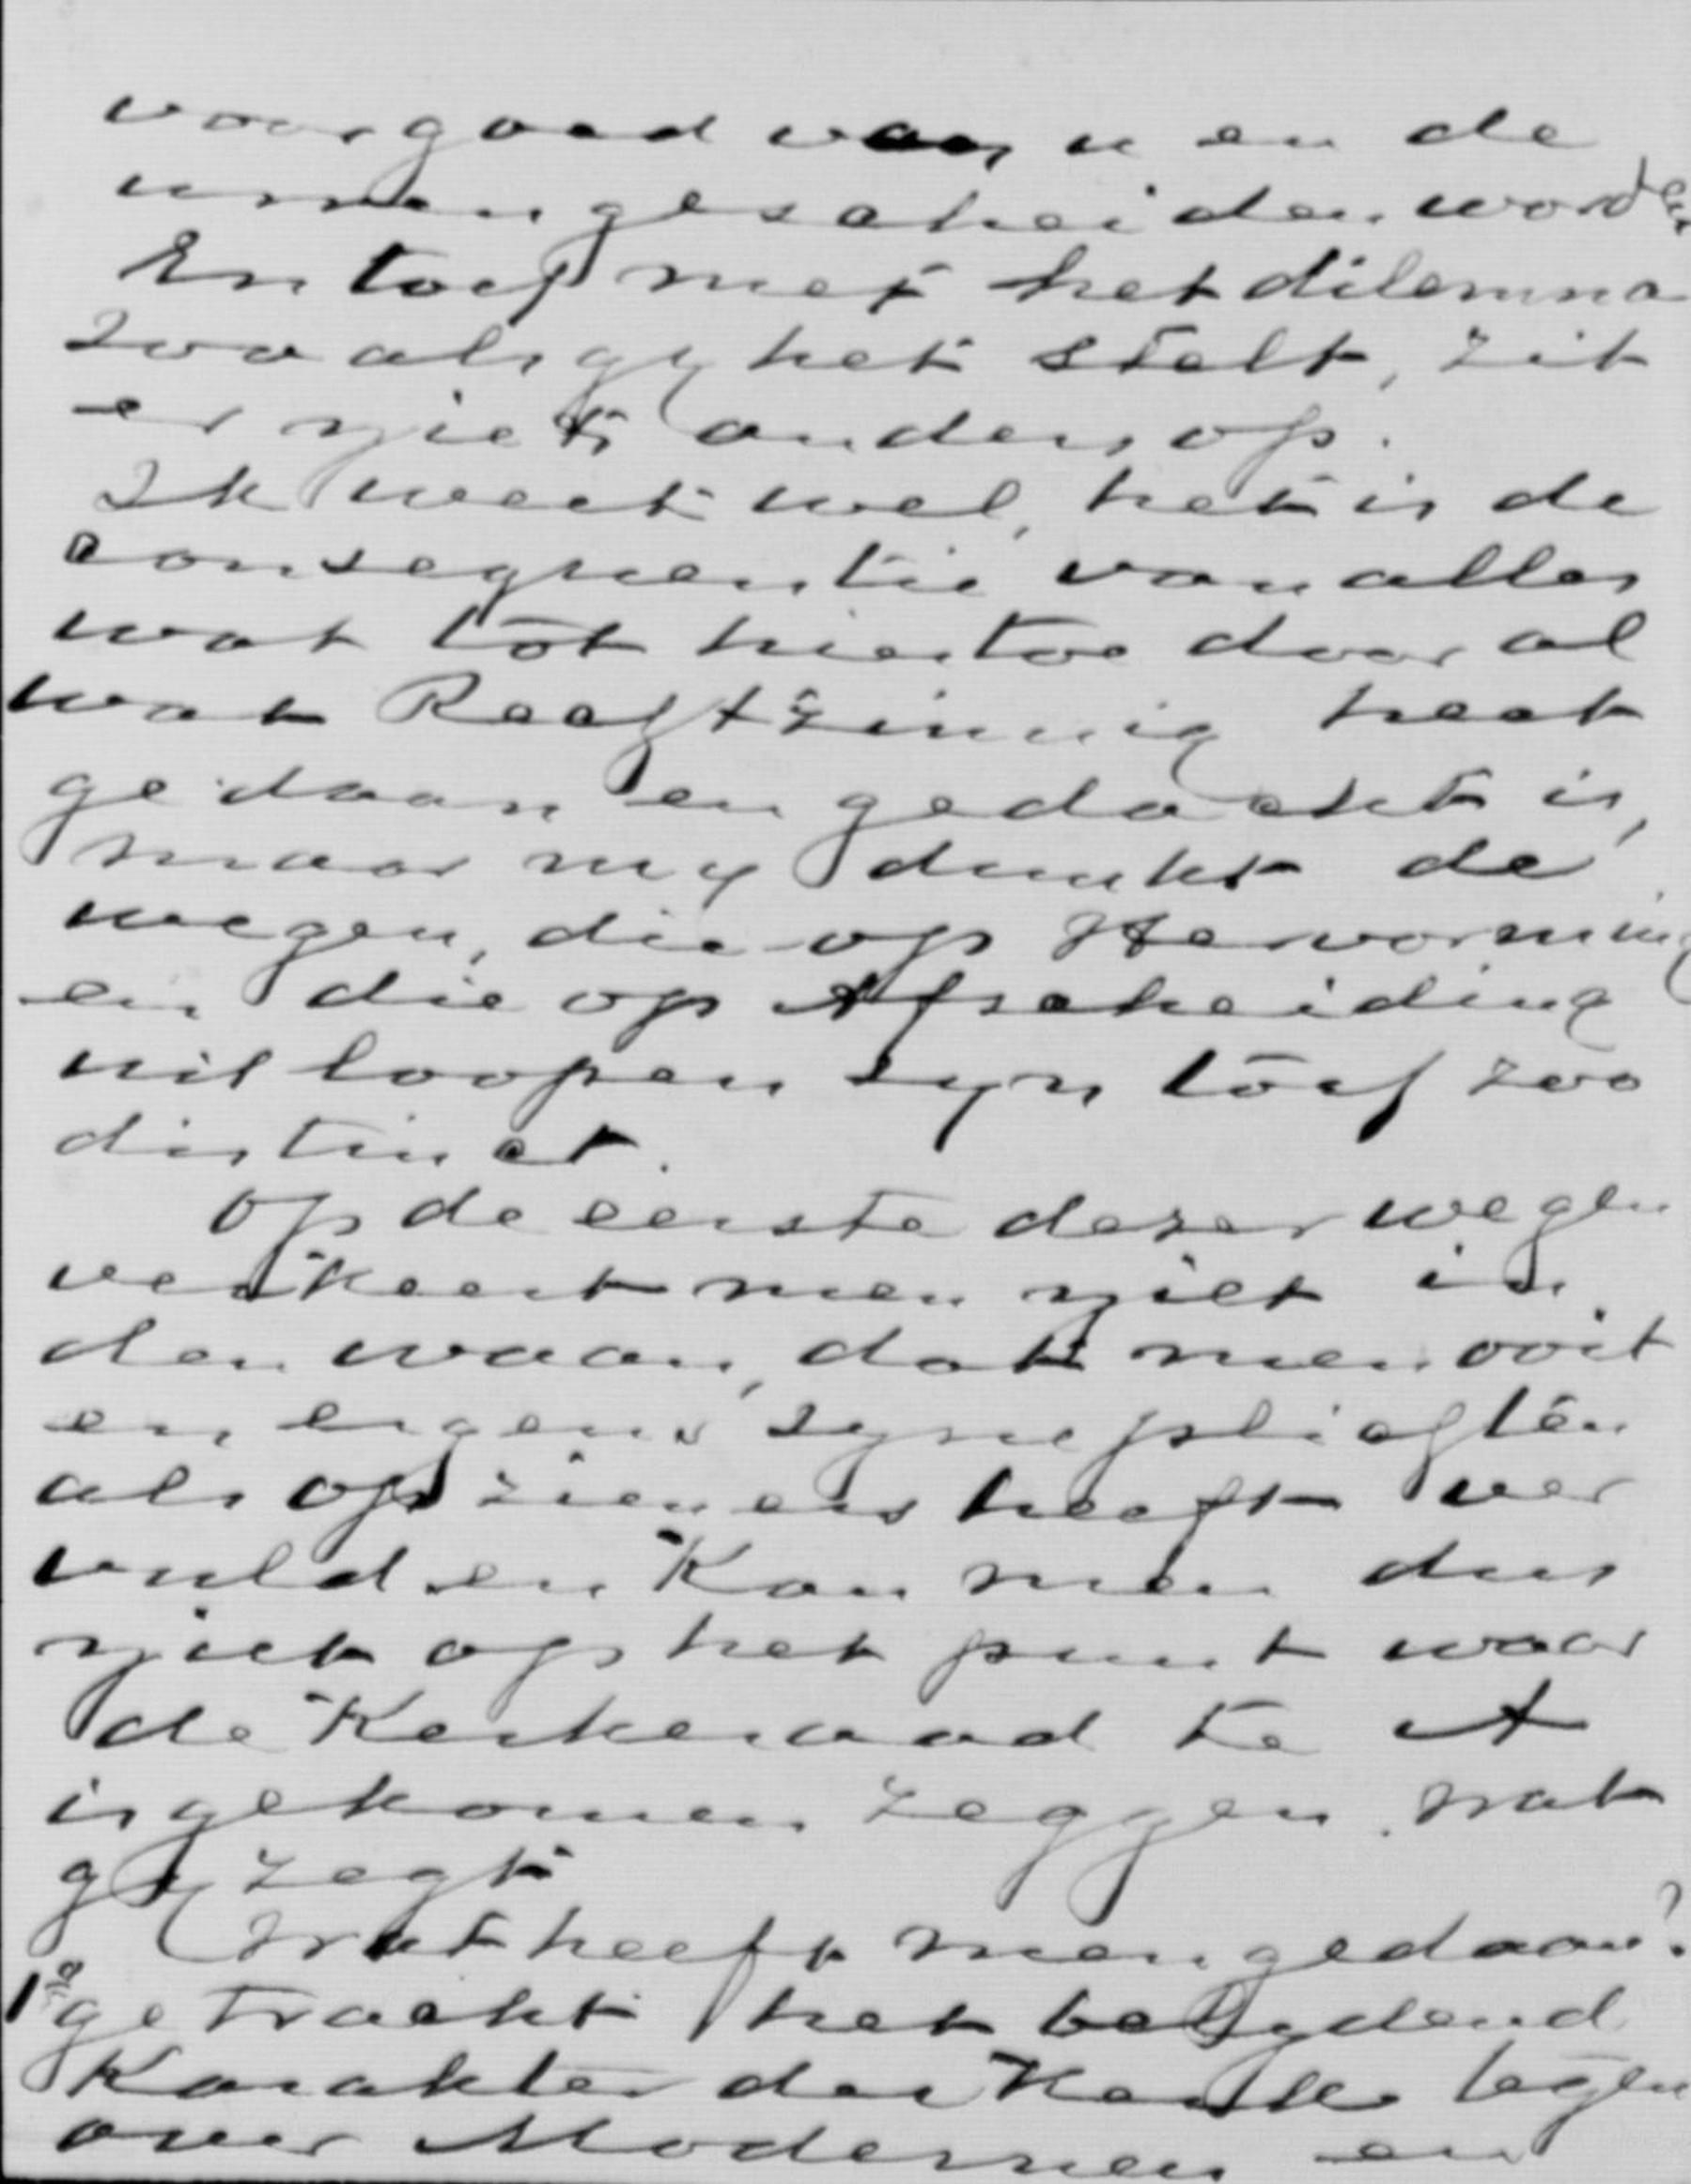 voorgoed van u en de
uwen gescheiden worden
En toch met het dilemma
zooals gy het stelt, zit
er niets anders op.
Ik weet wel, het is de
consequentie van alles
wat tot hiertoe door al
wat Rechtzinnig heet
gedaan en gedacht is,
maar my dunkt de
wegen, die op Hervorming
en die op Afscheiding
uitloopen zyn toch zoo
distinct.
Op de eerste dezer wegen
verkeert men niet in
den waan, dat men ooit
en ergens zyne plichten
als opzieners heeft ver
vuld en kan men dus
niet op het punt waar
de Kerkeraad te A
is gekomen zeggen wat
gy zegt
Wat heeft men gedaan?
1º getracht het belydend
Karakter der Kerk tegen
over Modernen en